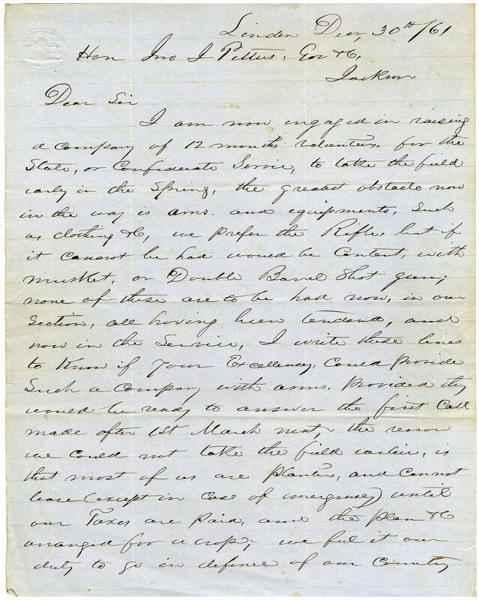 Linden Decr 30th/61
Hon Jno J Pettus, Gov &C,
Jackson
Dear Sir
I am now engaged in raising
a company of 12 months volunteers for the
State, or Confederate Service, to take the field
early in the Spring, the greatest obstacle now
in the way is arms. and equipments, Such
as clothing &C, we prefer the Rifle, but if
it cannot be had would be Content, with
musket, or Double Barrel Shot gun;
none of these are to be had now, in our
Section, all having been tendered, and
now in the Service, I write these lines
to Know if your Excellency, Could provide
Such a Company with arms. Provided they
would be ready to answer the first Call
made after 1st March next, the reason
we could not take the field earlier, is
that most of us are planters, and cannot
leave (except in Case of emergency) until
our Taxes are paid, and the plan &C
arranged for a crop; we feel it our
duty to go in defence of our Country